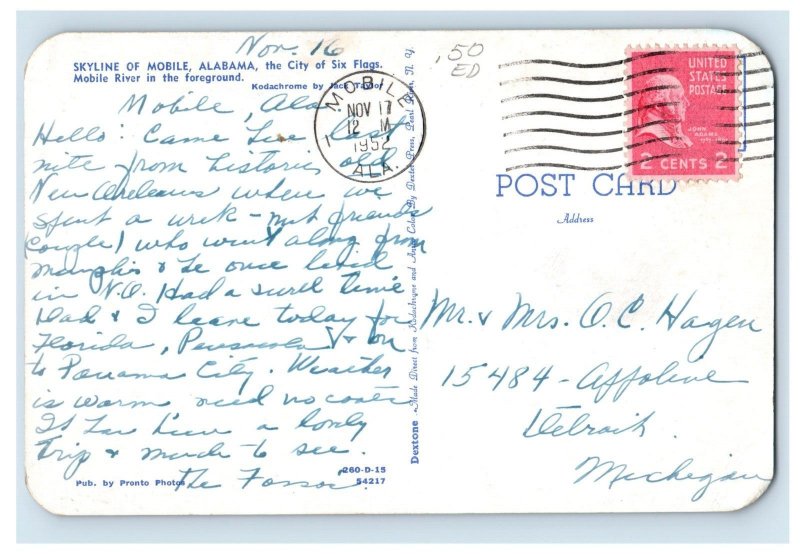 Nov. 16
SKYLINE OF MOBILE, ALABAMA, the City of Six Flags.
Mobile River in the foreground.
Kodachrome by Jack Taylor
Mobile, Ala
Hello: Came here last
nite from historic old
New Orleans where we
spent a week - met friends
(couple) who went along from
Memphis & he once lived
in N.O. Had a swell time
Dad & I leave today for
Florida, Pensacola & on
to Panama City. Weather
is warm need no coats
It has been a lovely
trip & much to see.
The
260-D-15
Pub. by Pronto Photos
54217
Dextone
Made Direct from Kodachrome and Ansco Color By Dexter Press, Pearl River, N. Y.
.50
ED
MOBILE
NOV 17
12 M
1952
ALA.
1
UNITED
STATES
POSTAGE
JOHN
ADAMS
2 CENTS 2
POST CARD
Address
Mr. & Mrs. O. C. Hagen
15484 - Appoline
Detroit
Michigan